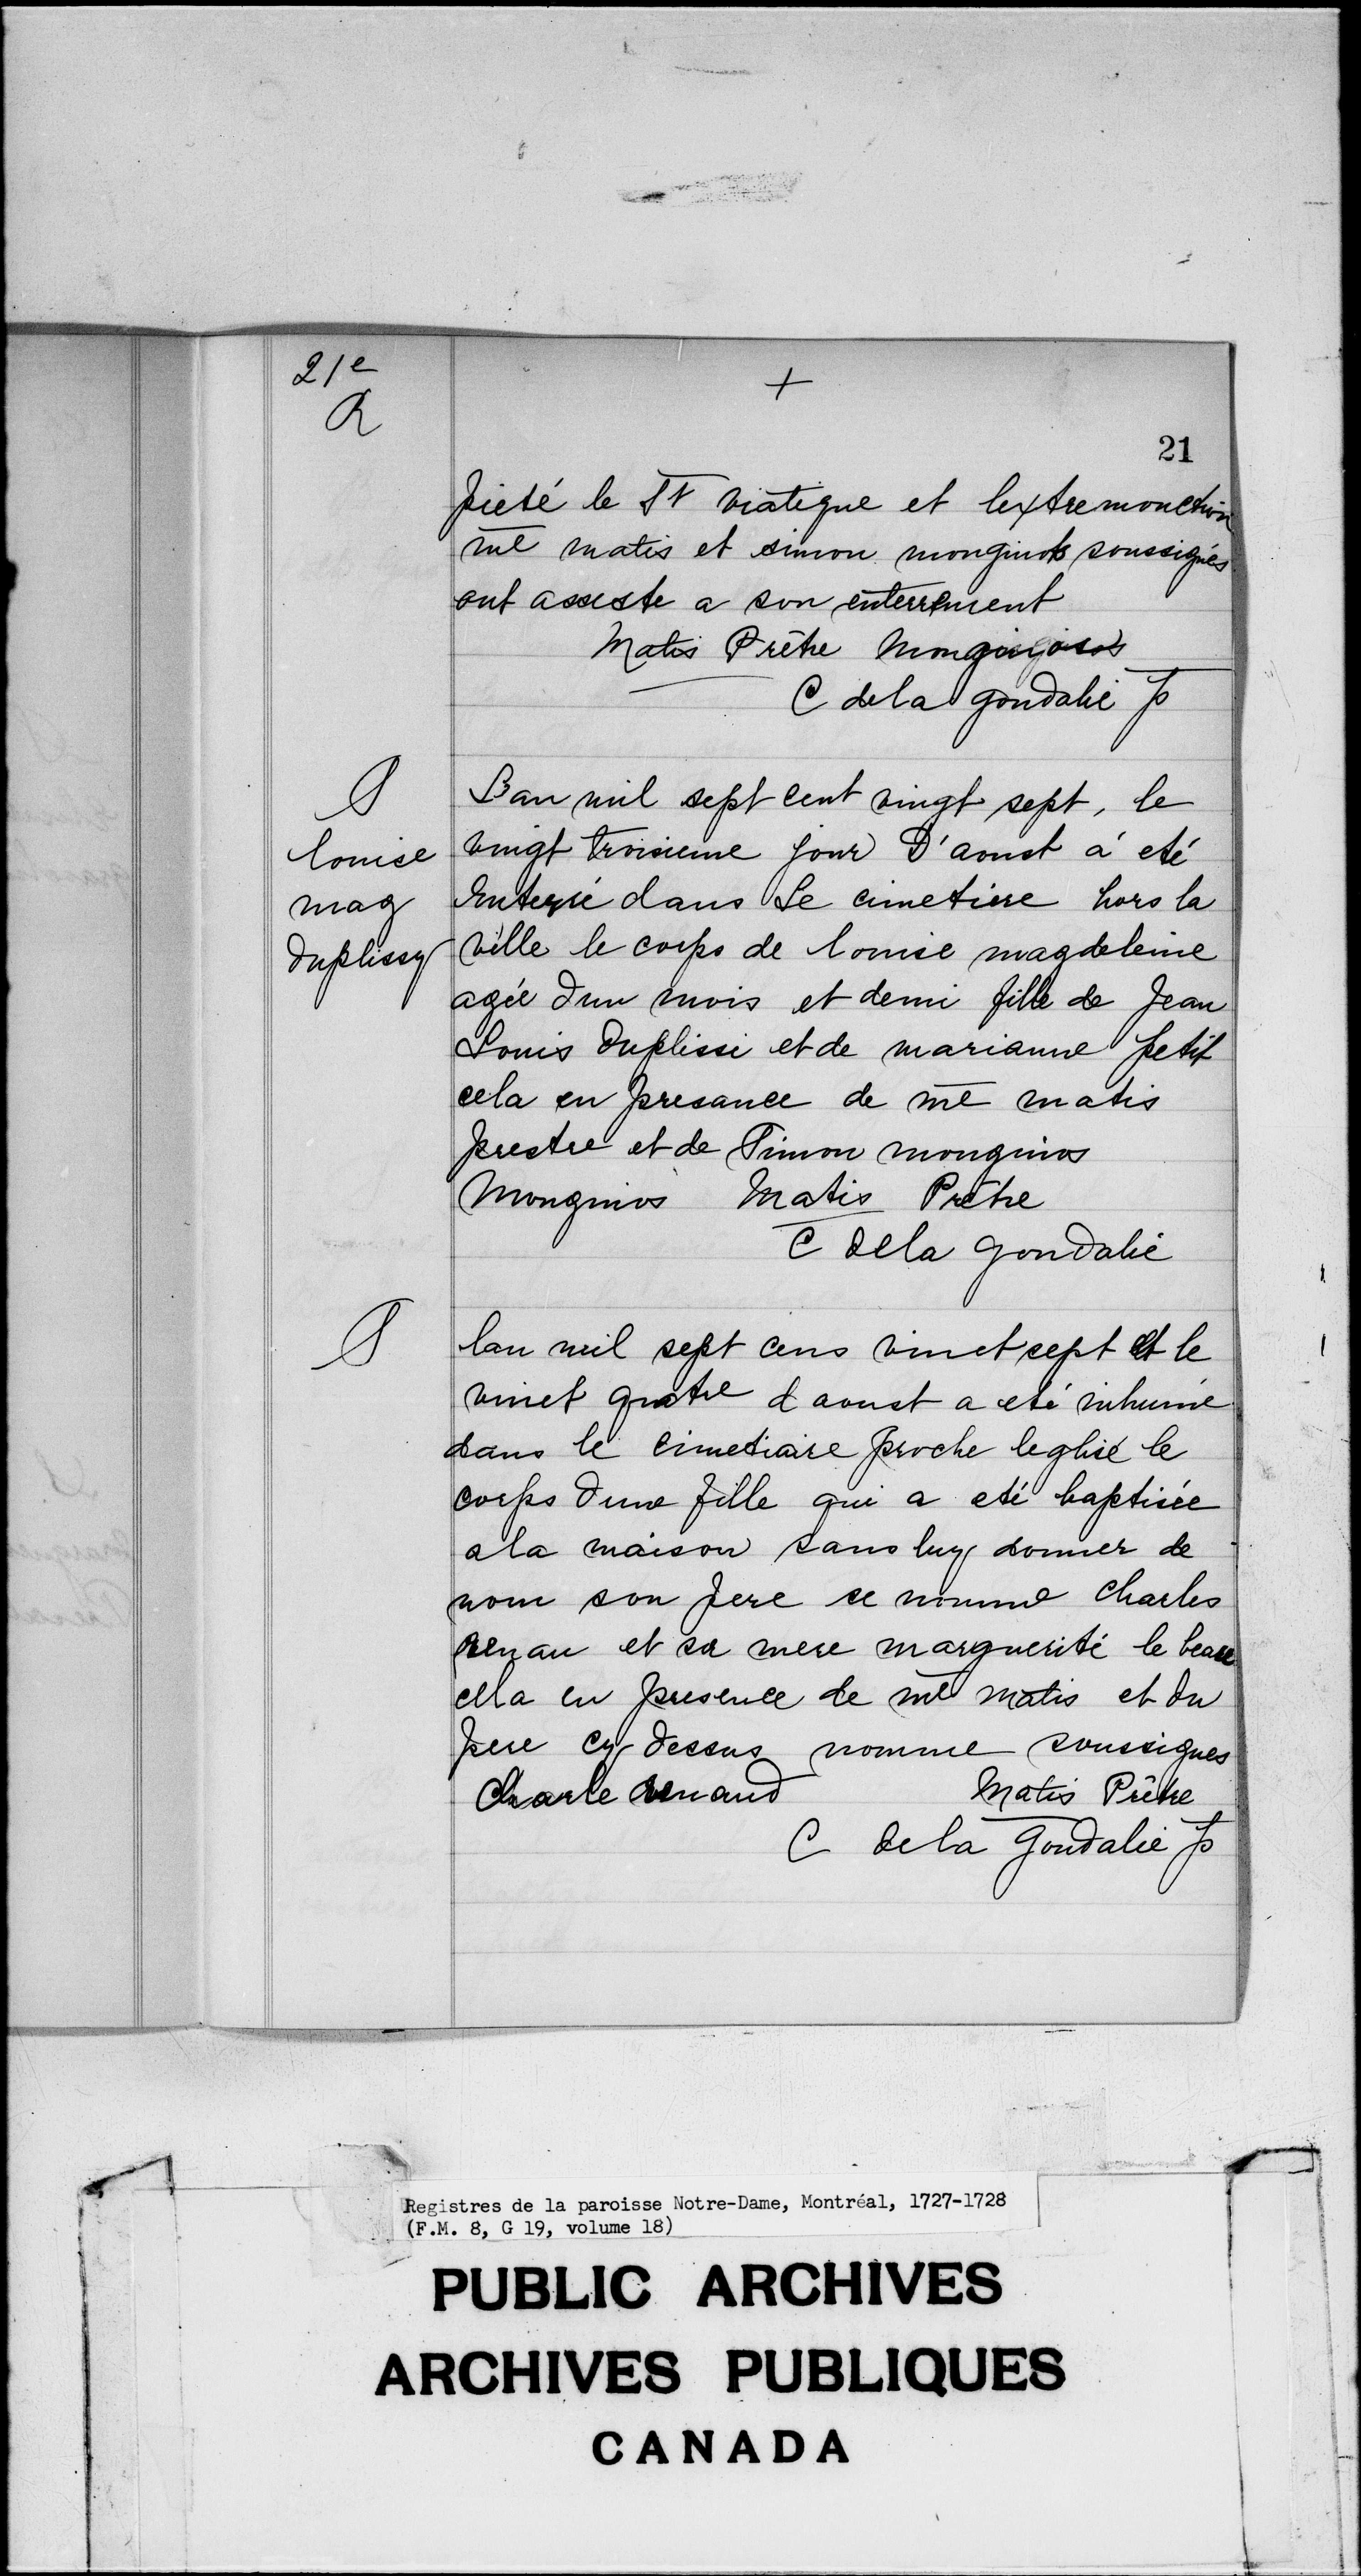 21e
R
+
21
pieté le St viatique et lextremonction
me matis et simon monginots soussignés
ont asseste a son enterrement
Matis Prêtre
C dela gondalie p
S
Lan mil sept cent vingt sept, le
louise
vingt troisieme jour D'aoust a été
mag
Enterré dans Le cimetiére hors la
duplissy
ville le corps de louise magdeleine
agée dun mois et demi fille de Jean
Louis Duplissi et de marianne petit
cela en presance de me matis
prestre et de Simon monginos
Monginos Matis Prêtre
C dela gondalie
S
lan mil sept cens vinet sept Et le
vinet quatre d aoust a eté inhumé
dans le cimetiaire proche leglise le
corps dune fille qui a eté baptisée
a la maison sans luy donner de
nom son pere se nomme Charles
renau et sa mere marguerité le
cela en presence de me matis et du
pere cy dessus nomme soussignes
Charle renaud Matis Prêtre
C dela Gondalie p
Registres de la paroisse Notre-Dame, Montréal, 1727-1728
(F.M. 8, G 19, volume 18)
PUBLIC ARCHIVES
ARCHIVES PUBLIQUES
CANADA